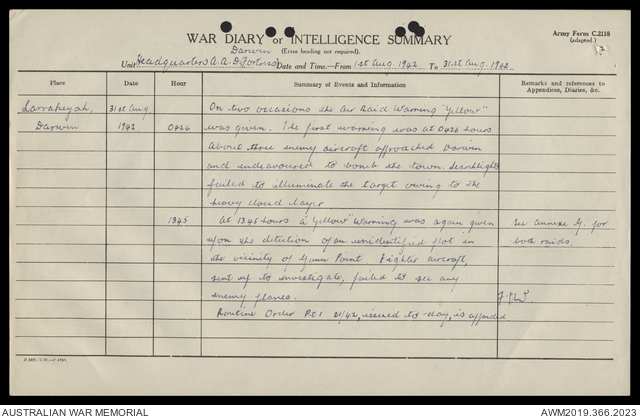 Army Form C.2118
(adapted.)
WAR DIARY or INTELLIGENCE SUMMARY
(Erase heading not required).
Unit Headquarters A.A. Darwin D. Fortress Date and Time.—From 1st Aug. 1942 To 31st Aug. 1942
Place Date Hour Summary of Events and Information Remarks and references to Appendices, Diaries, &c.
Larrakeyah, 31st Aug On two occasions the Air Raid Warning "Yellow"
Darwin 1942 0426 was given. The first warning was at 0426 hours
About three enemy aircraft approached Darwin
and endeavoured to bomb the town. Searchlights
failed to illuminate the target owing to the
heavy cloud layer
1345 At 1345 hours a "Yellow" Warning was again given See Annexe G. for
upon the detection of an unidentified plot in both raids.
the vicinity of Gunn Point Fighter aircraft,
sent up to investigate, failed to see any
enemy planes.
Routine Order Pt. 1 21/42, issued to-day, is appended
AUSTRALIAN WAR MEMORIAL
AWM2019.366.2023